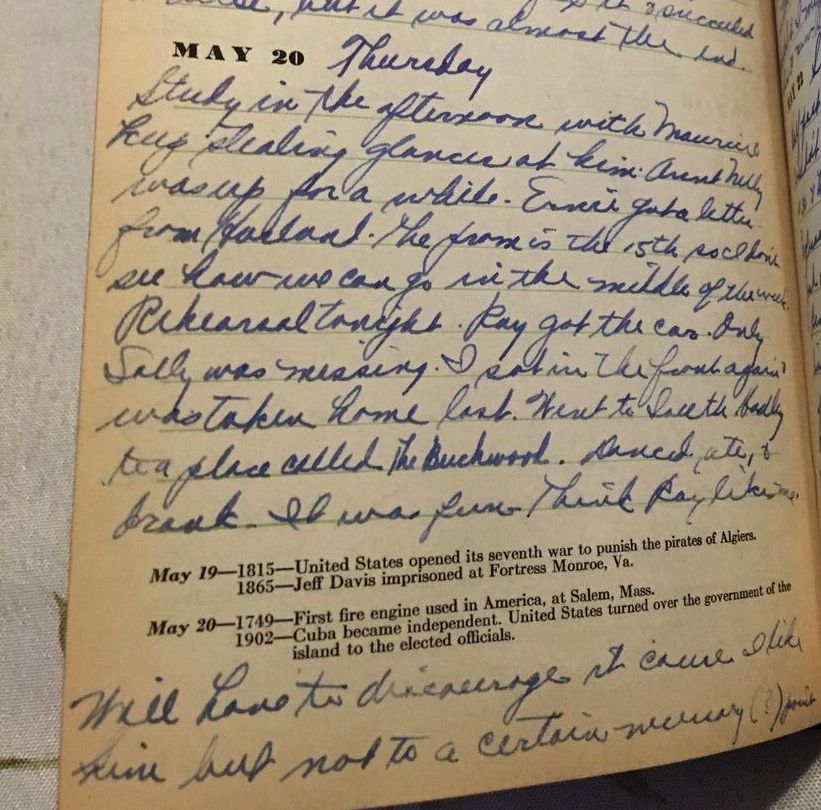 but it was almost the end.
MAY 20 Thursday
Study in the afternoon with Maurice
Keep stealing glances at him. Aunt Nelly
was up for a while. Ernie got a letter
from Harland. The prom is the 15th so I don't
see how we can go in the middle of the week.
Rehearsal tonight. Ray got the car. Only
Sally was missing. I sat in the front again
was taken home last. Went to South Hadley
to a place called The Buckwood. Danced, ate, &
drank. It was fun. Think Ray likes me.
May 19—1815—United States opened its seventh war to punish the pirates of Algiers.
1865—Jeff Davis imprisoned at Fortress Monroe, Va.
May 20—1749—First fire engine used in America, at Salem, Mass.
1902—Cuba became independent. United States turned over the government of the
island to the elected officials.
Will have to discourage it cause I like
him but not to a certain (?) point